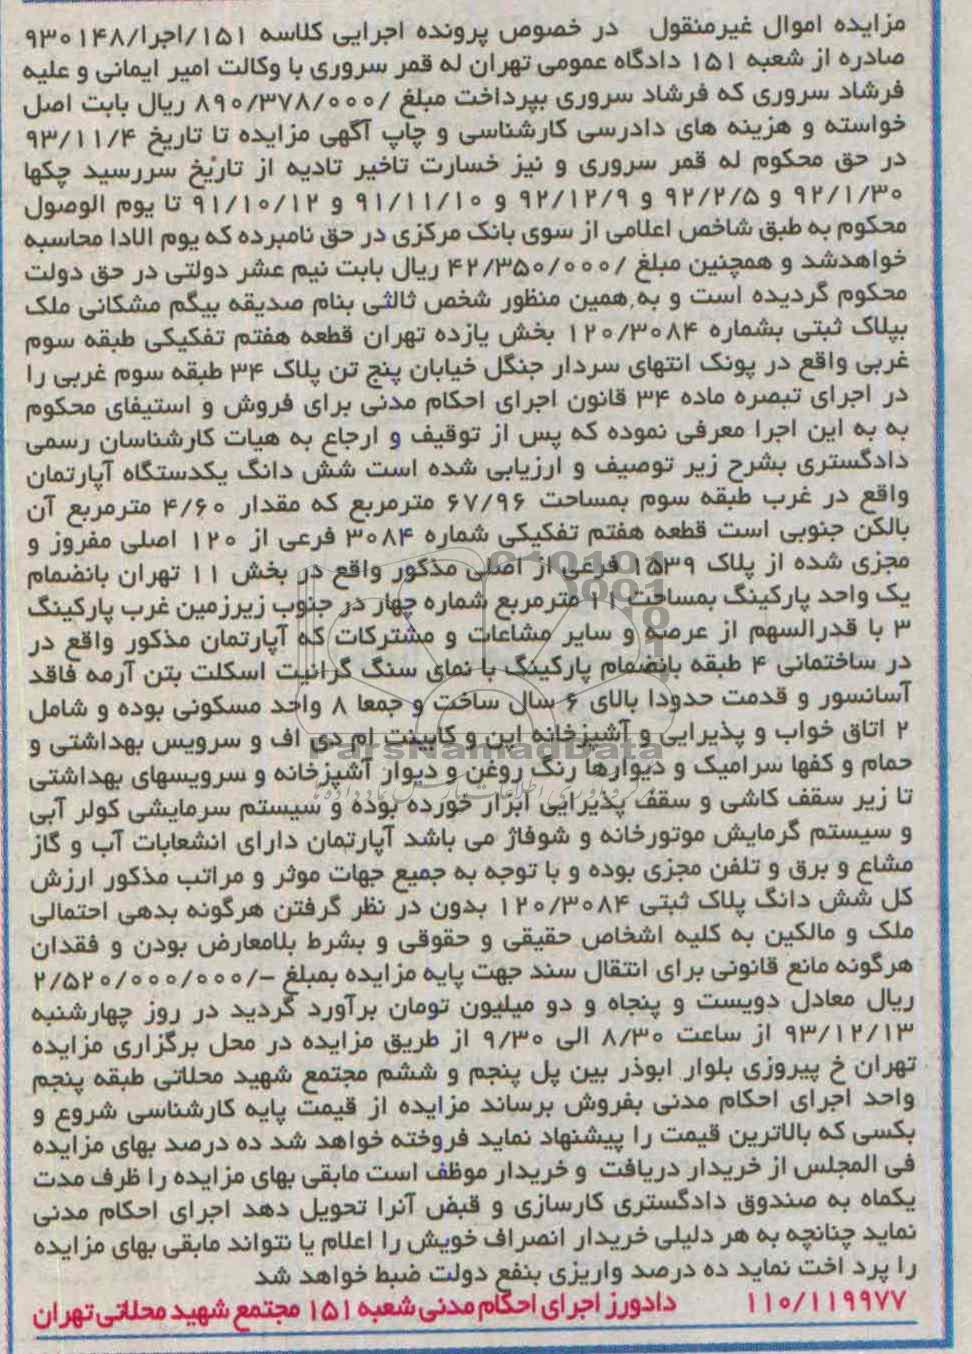 مزایده اموال غیرمنقول    در خصوص پرونده اجرایی کلاسه ۱۵۱/اجرا/۹۳۰۱۴۸
صادره از شعبه ۱۵۱ دادگاه عمومی تهران له قمر سروری با وکالت امیر ایمانی و علیه
فرشاد سروری که فرشاد سروری بپرداخت مبلغ /۸۹۰/۳۷۸/۰۰۰ ریال بابت اصل
خواسته و هزینه های دادرسی کارشناسی و چاپ آگهی مزایده تا تاریخ ۹۳/۱۱/۴
در حق محکوم له قمر سروری و نیز خسارت تاخیر تادیه از تاریخ سررسید چکها
۹۲/۱/۳۰ و ۹۲/۲/۵ و ۹۲/۱۲/۹ و ۹۱/۱۱/۱۰ و ۹۱/۱۰/۱۲ تا یوم الوصول
محکوم به طبق شاخص اعلامی از سوی بانک مرکزی در حق نامبرده که یوم الادا محاسبه
خواهدشد و همچنین مبلغ /۴۲/۳۵۰/۰۰۰ ریال بابت نیم عشر دولتی در حق دولت
محکوم گردیده است و به همین منظور شخص ثالثی بنام صدیقه بیگم مشکانی ملک
بپلاک ثبتی بشماره ۱۲۰/۳۰۸۴ بخش یازده تهران قطعه هفتم تفکیکی طبقه سوم
غربی واقع در پونک انتهای سردار جنگل خیابان پنج تن پلاک ۳۴ طبقه سوم غربی را
در اجرای تبصره ماده ۳۴ قانون اجرای احکام مدنی برای فروش و استیفای محکوم
به به این اجرا معرفی نموده که پس از توقیف و ارجاع به هیات کارشناسان رسمی
دادگستری بشرح زیر توصیف و ارزیابی شده است شش دانگ یکدستگاه آپارتمان
واقع در غرب طبقه سوم بمساحت ۶۷/۹۶ مترمربع که مقدار ۴/۶۰ مترمربع آن
بالکن جنوبی است قطعه هفتم تفکیکی شماره ۳۰۸۴ فرعی از ۱۲۰ اصلی مفروز و
مجزی شده از پلاک ۱۵۳۹ فرعی از اصلی مذکور واقع در بخش ۱۱ تهران بانضمام
یک واحد پارکینگ بمساحت ۱۱ مترمربع شماره چهار در جنوب زیرزمین غرب پارکینگ
۳ با قدرالسهم از عرصه و سایر مشاعات و مشترکات که آپارتمان مذکور واقع در
در ساختمانی ۴ طبقه بانضمام پارکینگ با نمای سنگ گرانیت اسکلت بتن آرمه فاقد
آسانسور و قدمت حدودا بالای ۶ سال ساخت و جمعا ۸ واحد مسکونی بوده و شامل
۲ اتاق خواب و پذیرایی و آشپزخانه اپن و کابینت ام دی اف و سرویس بهداشتی و
حمام و کفها سرامیک و دیوارها رنگ روغن و دیوار آشپزخانه و سرویسهای بهداشتی
تا زیر سقف کاشی و سقف پذیرایی ابزار خورده بوده و سیستم سرمایشی کولر آبی
و سیستم گرمایش موتورخانه و شوفاژ می باشد آپارتمان دارای انشعابات آب و گاز
مشاع و برق و تلفن مجزی بوده و با توجه به جمیع جهات موثر و مراتب مذکور ارزش
کل شش دانگ پلاک ثبتی ۱۲۰/۳۰۸۴ بدون در نظر گرفتن هرگونه بدهی احتمالی
ملک و مالکین به کلیه اشخاص حقیقی و حقوقی و بشرط بلامعارض بودن و فقدان
هرگونه مانع قانونی برای انتقال سند جهت پایه مزایده بمبلغ -/۲/۵۲۰/۰۰۰/۰۰۰
ریال معادل دویست و پنجاه و دو میلیون تومان برآورد گردید در روز چهارشنبه
۹۳/۱۲/۱۳ از ساعت ۸/۳۰ الی ۹/۳۰ از طریق مزایده در محل برگزاری مزایده
تهران خ پیروزی بلوار ابوذر بین پل پنجم و ششم مجتمع شهید محلاتی طبقه پنجم
واحد اجرای احکام مدنی بفروش برساند مزایده از قیمت پایه کارشناسی شروع و
بکسی که بالاترین قیمت را پیشنهاد نماید فروخته خواهد شد ده درصد بهای مزایده
فی المجلس از خریدار دریافت و خریدار موظف است مابقی بهای مزایده را ظرف مدت
یکماه به صندوق دادگستری کارسازی و قبض آنرا تحویل دهد اجرای احکام مدنی
نماید چنانچه به هر دلیلی خریدار انصراف خویش را اعلام یا نتواند مابقی بهای مزایده
را پرد اخت نماید ده درصد واریزی بنفع دولت ضبط خواهد شد
۱۱۰/۱۱۹۹۷۷    دادورز اجرای احکام مدنی شعبه ۱۵۱ مجتمع شهید محلاتی تهران
ParsNamadData